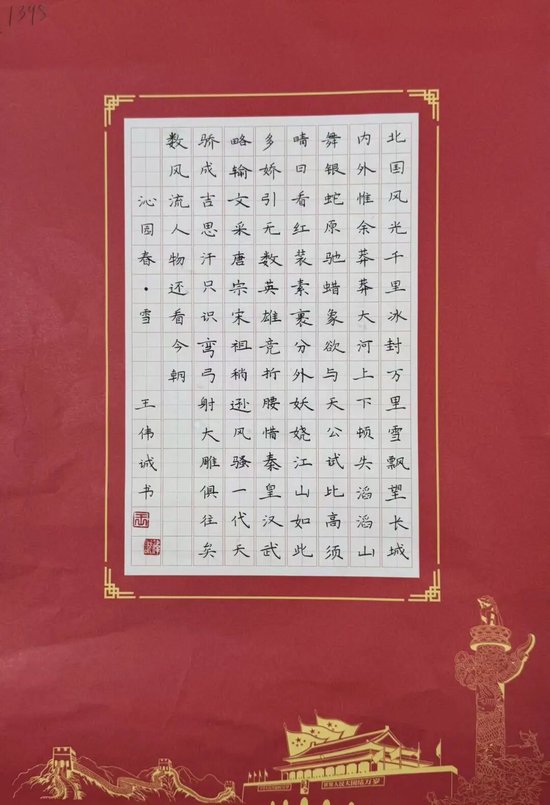 北国风光千里冰封万里雪飘望长城
内外惟余莽莽大河上下顿失滔滔山
舞银蛇原驰蜡象欲与天公试比高须
晴日看红装素裹分外妖娆江山如此
多娇引无数英雄竞折腰惜秦皇汉武
略输文采唐宗宋祖稍逊风骚一代天
骄成吉思汗只识弯弓射大雕俱往矣
数风流人物还看今朝
沁园春·雪 王伟诚书
世界人民大团结万岁